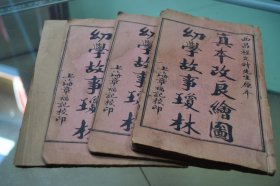 西昌程允升先生原本
真本改良繪圖
幼學故事瓊林
上海章福記校印
幼學故事瓊林
幼學故事瓊林
上海章福記校印